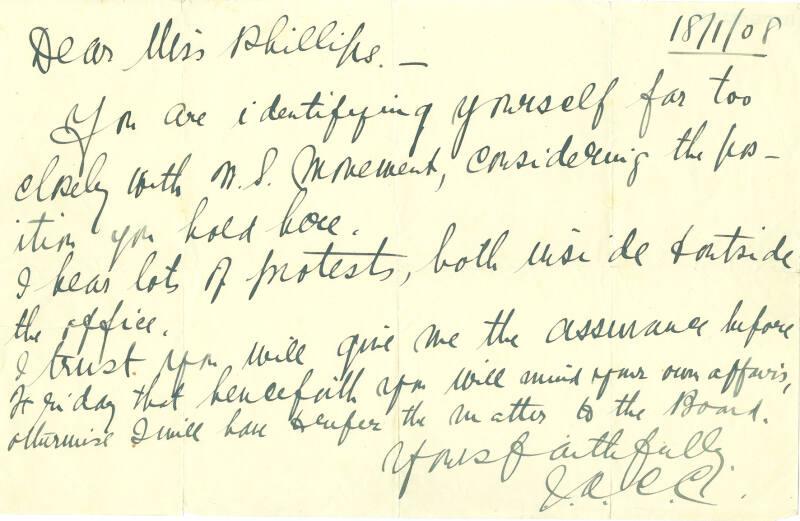 18/1/08
Dear Miss Phillips. —
You are identifying yourself far too
closely with W. S. Movement, considering the pos-
ition you hold here.
I hear lots of protests, both inside & outside
the office.
I trust you will give me the assurance before
Friday that henceforth you will mind your own affairs,
otherwise I will have to refer the matter to the Board.
Yours faithfully